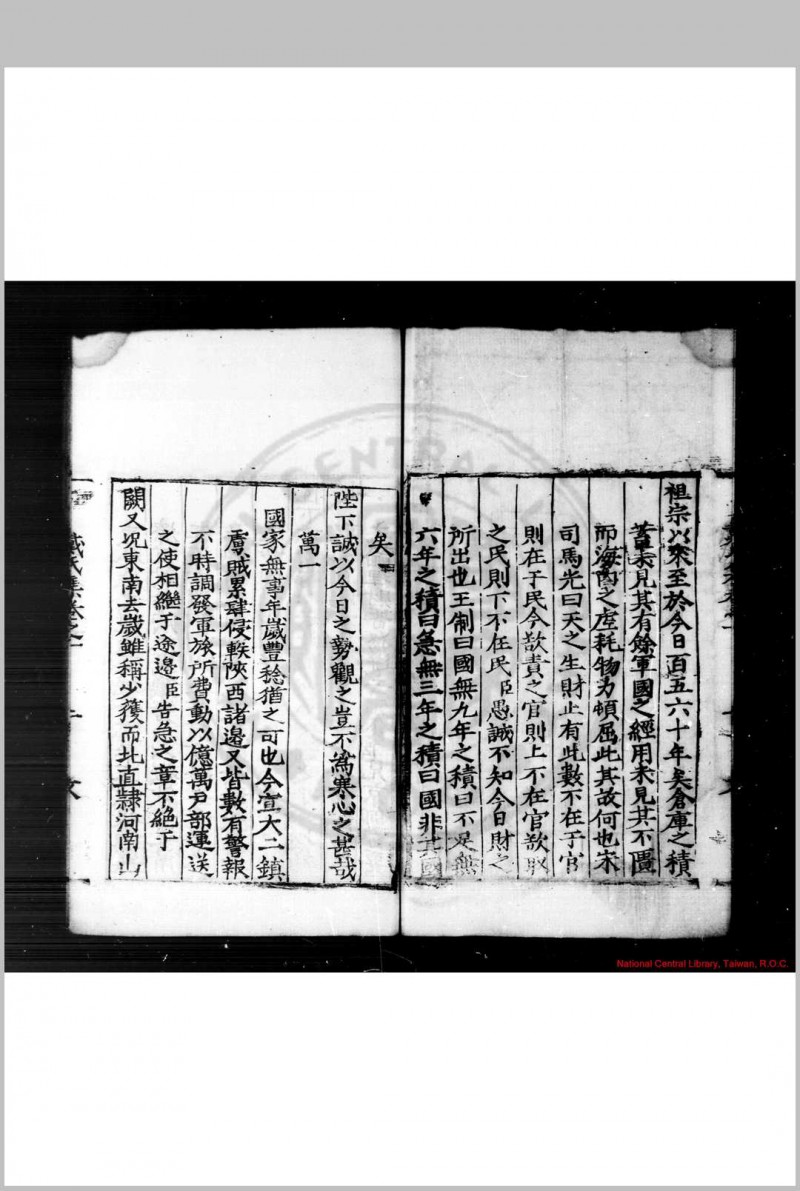 祖宗以來至於今日百五六十年矣倉庫之積
蓄未見其有餘軍國之經用未見其不匱
而海內之虛耗物力頓屈此其故何也宋
司馬光曰天之生財止有此數不在于官
則在于民今欲責之官則上不在官欲取
之民則下不在民臣愚誠不知今日財之
所出也王制曰國無九年之積曰不足無
六年之積曰急無三年之積曰國非其國
矣
陛下誠以今日之勢觀之豈不為寒心之甚哉
萬一
國家無事年歲豐稔猶之可也今宣大二鎮
虜賊累肆侵軼陝西諸邊又皆數有警報
不時調發軍旅所費動以億萬戶部運送
之使相繼于途邊臣告急之章不絕于
闕又況東南去歲雖稱少獲而北直隸河南山
戴氏集卷之十
National Central Library, Taiwan, R.O.C.